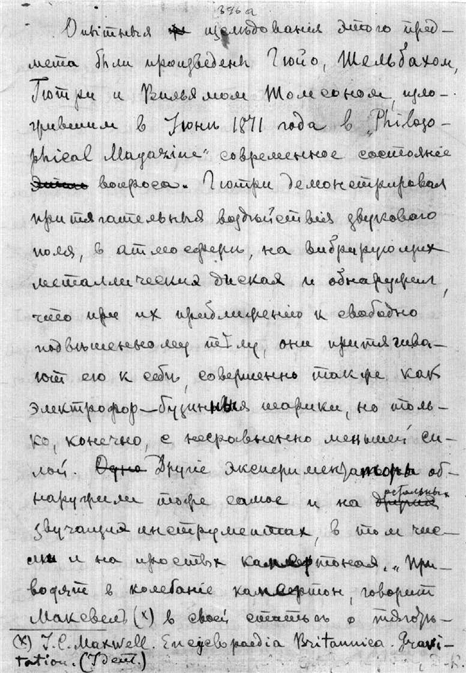 386а
Опытныя изслѣдованія этого пред-
мета были произведены Гюйо, Шельбахом,
Гютри и Вильямом Томсоном, изло-
жившим в Іюнѣ 1871 года в „Philoso-
phical Magazine“ современное состояніе
вопроса. Гютри демонстрировал
притягательныя воздѣйствія звукового
поля, в атмосферѣ, на вибрирующих
металлических дисках и обнаружил,
что при их приближеніи к свободно
подвѣшенному тѣлу, они притягива-
ют его к себѣ, совершенно также как
электрофор—бузинные шарики, но толь-
ко, конечно, с несравненно меньшей си-
лой. Другіе экспериментаторы об-
наружили тоже самое и на остальных
звучащих инструментах, в том чис-
ле и на простых камертонах. „При-
водят в колебаніе камертон, говорит
Максвелл (x) в своей статьѣ о тяготѣ-
(x) J. C. Maxwell. Encyclopaedia Britannica. Gravi-
tation. (Ident.)